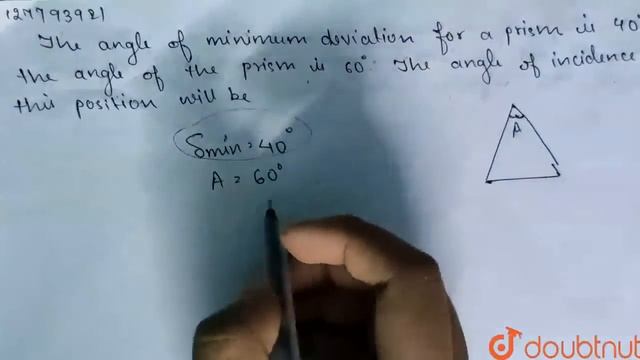 127793921
The angle of minimum deviation for a prism is 40
the angle of the prism is 60° The angle of incidence
this position will be
δmin = 40°
A
A = 60°
doubtnut